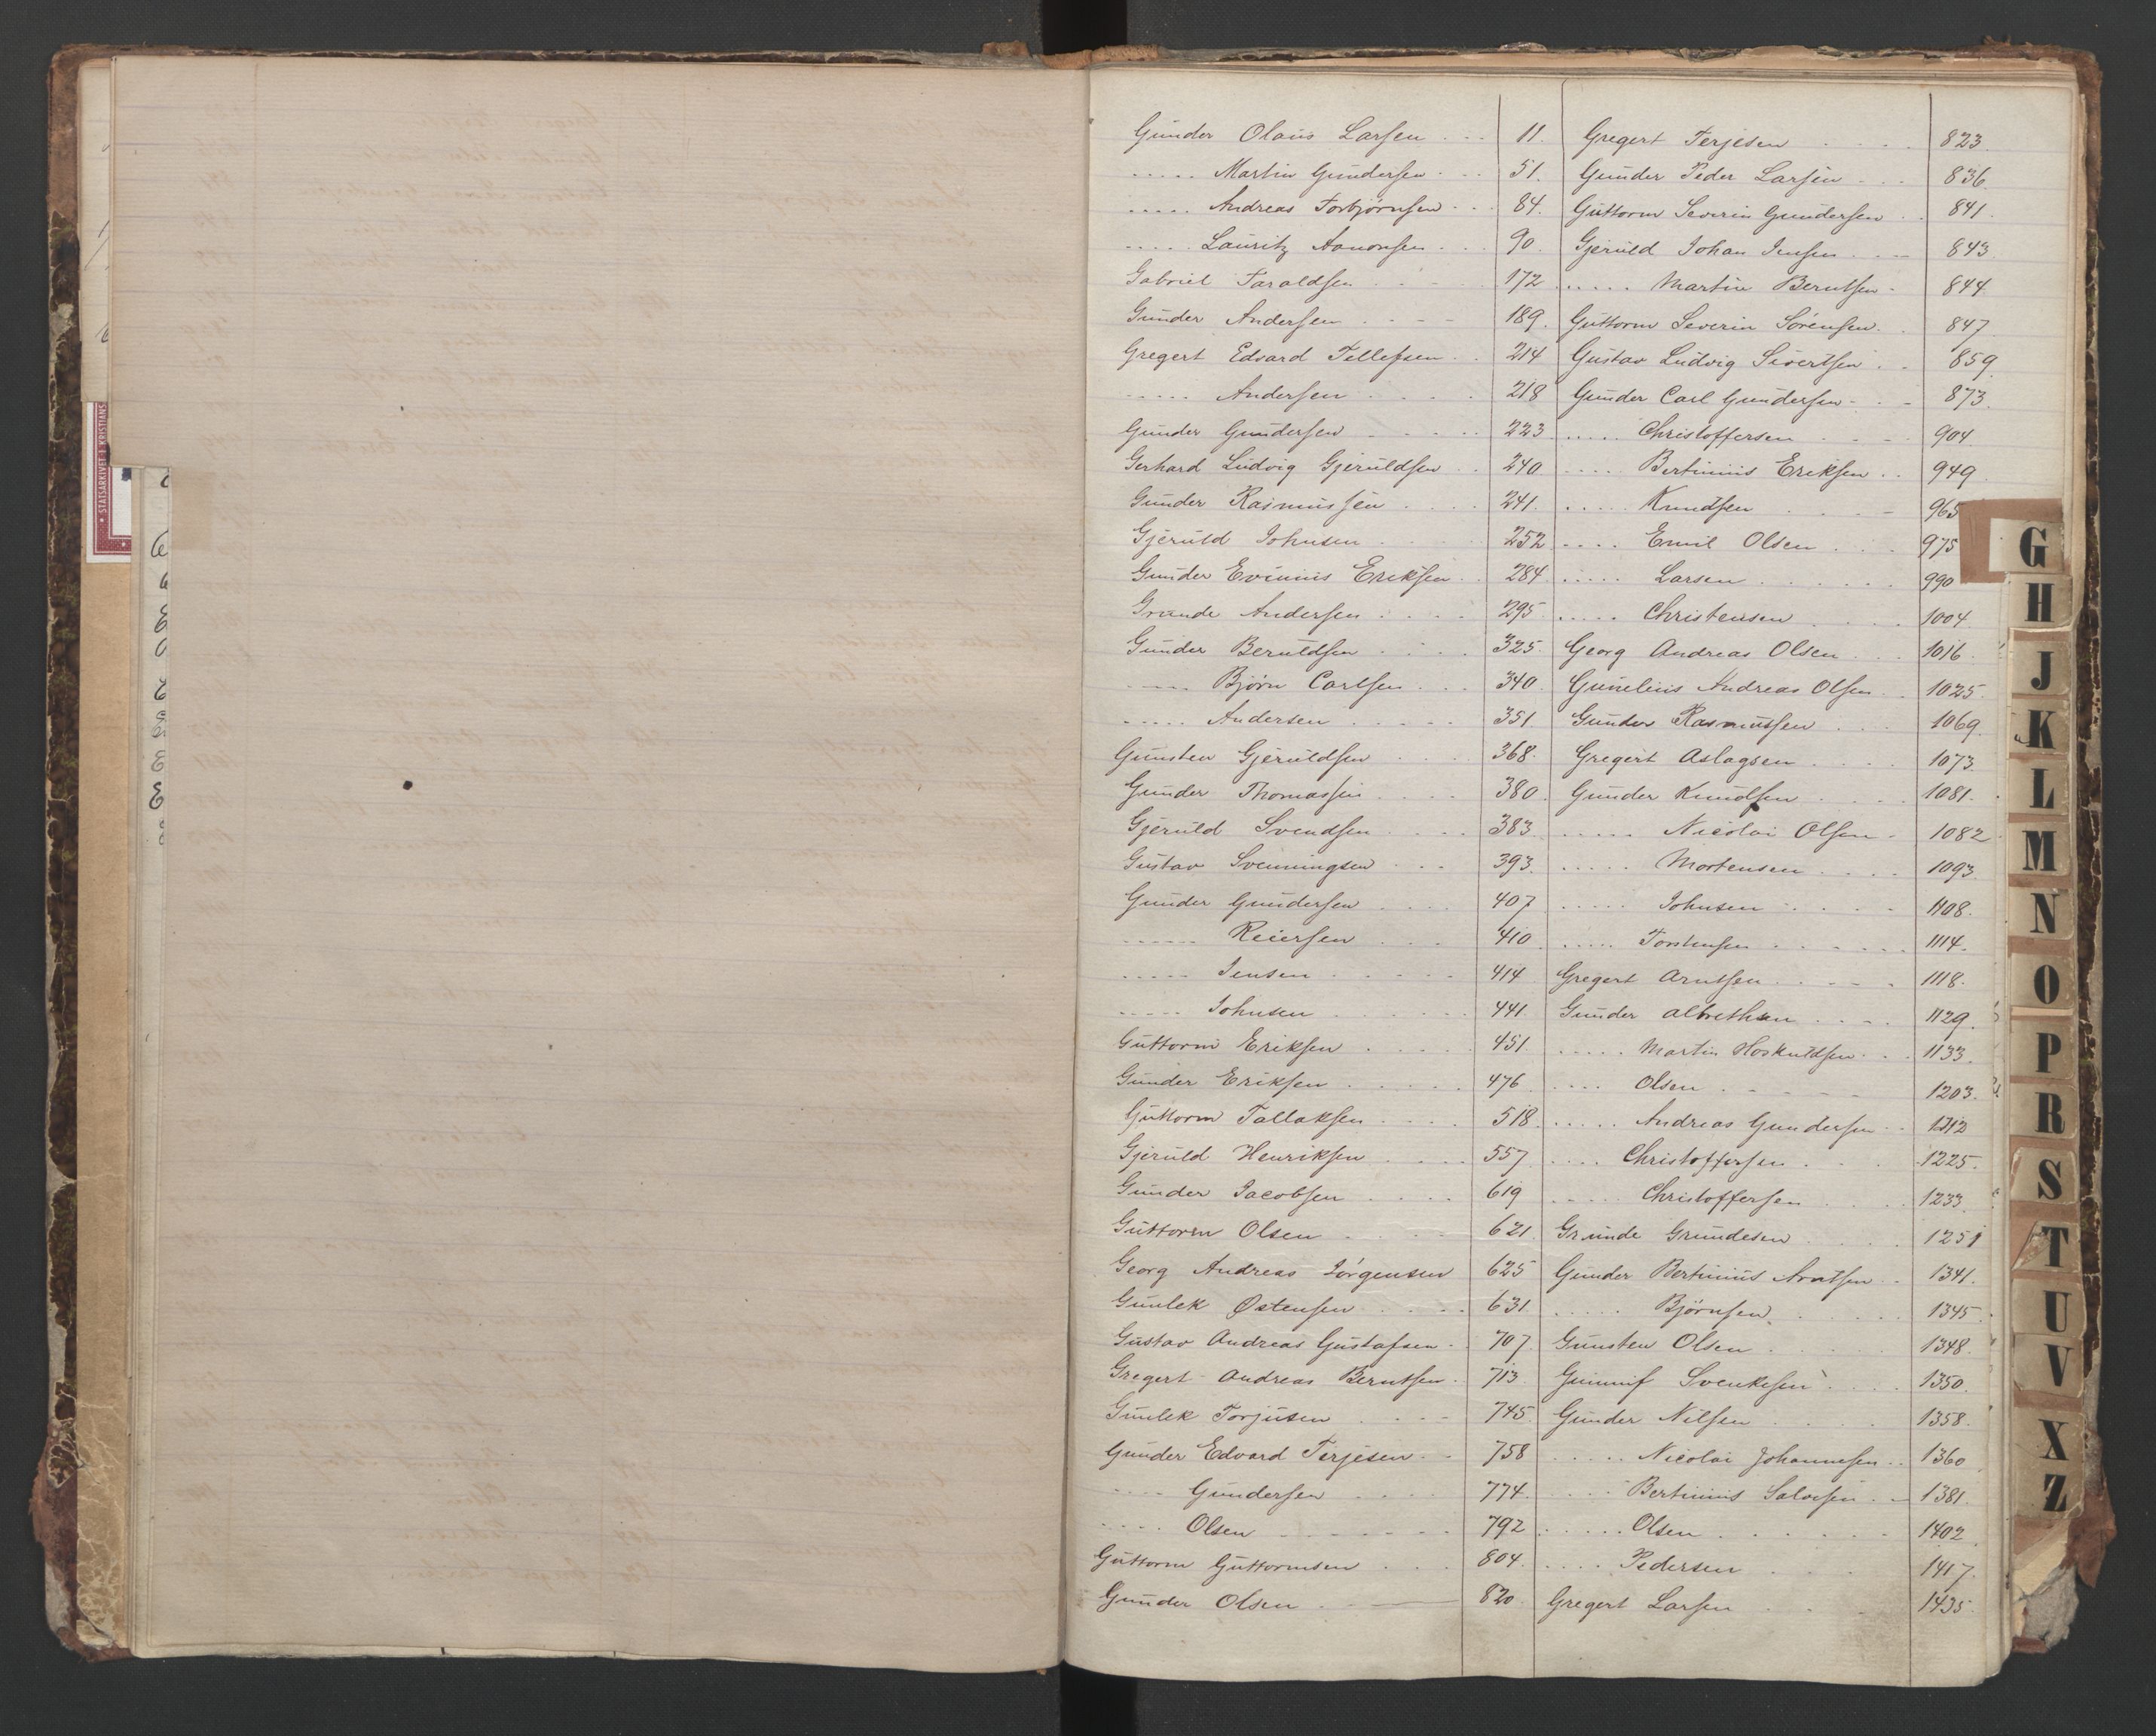 Gunder Olaus Larsen - - - 11.
----- Martin Gundersen - - - 51.
----- Andreas Torbjørnsen - - - 84.
----- Lauritz Aanonsen - - - 90.
Gabriel Taraldsen - - - 172
Gunder Andersen - - - 189.
Gregert Edvard Tellefsen - - 214
----- Andersen - - - 218
Gunder Gundersen - - - 223
Gerhard Ludvig Gjeruldsen - - 240
Gunder Rasmussen - - - 241.
Gjeruld Johnsen - - - 252
Gunder Evinius Eriksen - - 284
Grunde Andersen - - - 295
Gunder Beruldsen - - - 325.
----- Bjørn Carlsen - - - 340.
----- Andersen - - - 351
Gunsten Gjeruldsen - - - 368.
Gunder Thomassen - - - 380.
Gjeruld Svendsen - - - 383
Gustav Svenningsen - - - 393.
Gunder Gundersen - - - 407
----- Reiersen - - - 410
----- Jensen - - - 414
----- Johnsen - - - 441
Guttorm Eriksen - - - 451
Gunder Eriksen - - - 476
Guttorm Tallaksen - - - 518.
Gjeruld Henriksen - - - 557
Gunder Jacobsen - - - 619
Guttorm Olsen - - - 621
Georg Andreas Jörgensen 625
Gunlek Østensen - - - 631.
Gustav Andreas Gustafsen - - 707
Gregert Andreas Berntsen - 713
Gunlek Torjusen - - - 745
Gunder Edvard Terjesen - - 758
----- Gundersen - - - 774.
----- Olsen - - - 792
Guttorm Guttormsen - - - 804.
Gunder Olsen - - - 820
Gregert Terjesen - - - 823.
Gunder Peder Larsen - - - 836
Guttorm Severin Gundersen - - 841.
Gjeruld Johan Jensen - - - 843
----- Martin Berntsen - 844
Guttorm Severin Sörensen - - 847
Gustav Ludvig Sivertsen - - 859
Gunder Carl Gundersen - - - 873.
----- Christoffersen - - - 904
----- Bertinius Eriksen - - 949
----- Knudsen - - - 965
----- Emil Olsen - - - 975
----- Larsen - - - 990
----- Christensen - - - 1004
Georg Andreas Olsen - - - 1016
Gunelius Andreas Olsen - - 1025
Gunder Rasmussen - - - 1069
Gregert Aslagsen - - - 1073
Gunder Knudsen - - - 1081.
----- Nicolai Olsen - 1082
----- Mortensen - - - 1093
----- Johnsen - - - 1108.
----- Torstensen - - - 1114.
Gregert Arntsen - - - 1118.
Gunder Albrethsen - - - 1129.
----- Martin Hoskuldsen - - - 1133.
----- Olsen - - - 1203.
----- Andreas Gundersen - - 1212
----- Christoffersen - - - 1225.
----- Christoffersen - - - 1233
Grunde Grundesen - - - 1251
Gunder Bertinius Arntsen - 1341.
----- Björnsen - - - 1345
Gunsten Olsen - - - 1348
Svenkesen - - - 1350.
Gunder Nilsen - - - 1358.
----- Nicolai Johannesen - - 1360
----- Bertinius Salvesen - - 1381.
----- Olsen - - - 1402
----- Pedersen - - - 1417.
Gregert Larsen - - - 1435
G
H
J
K
L
M
N
O
P
R
S
T
U
V
X
Z
STATSARKIVET I KRISTIANS